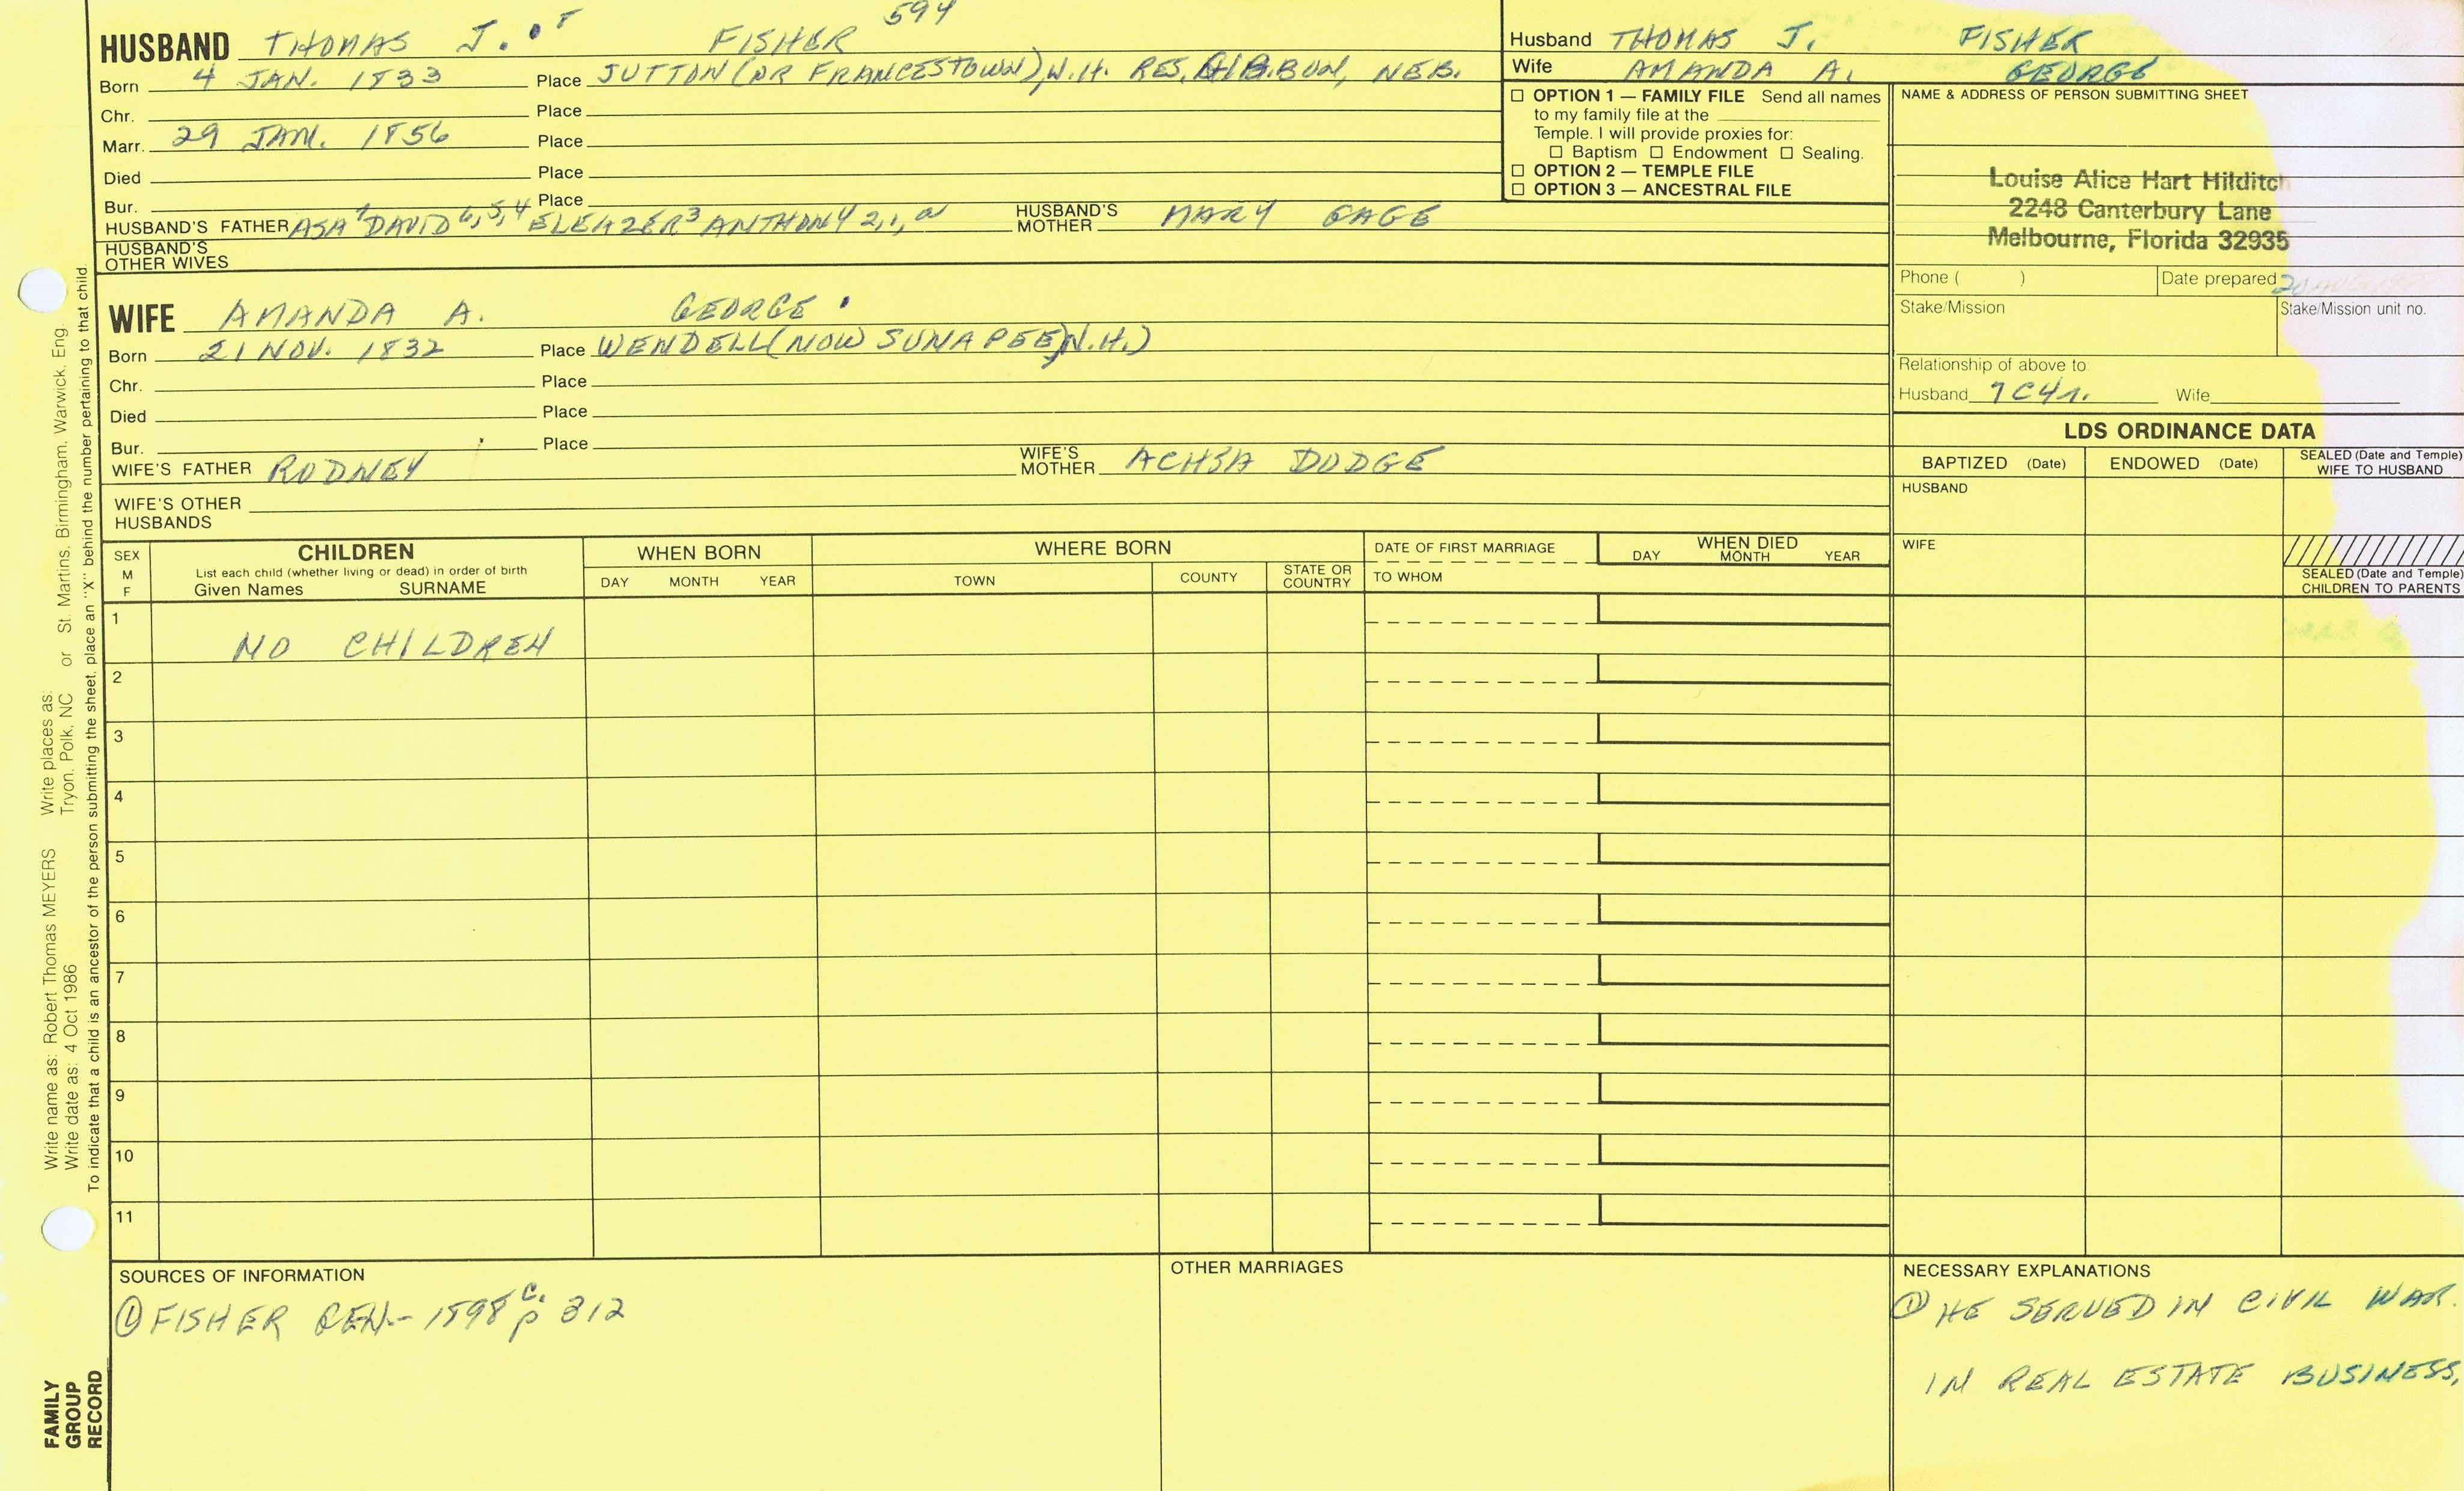 594
HUSBAND THOMAS J. 8 FISHER
Born 4 JAN. 1833 Place SUTTON (OR FRANCESTOWN), N.H. RES. GIBBON, NEB.
Chr. Place
Marr. 29 JAN. 1856 Place
Died Place
Bur. Place
HUSBAND'S FATHER ASA 7 DAVID 6,5,4 ELEAZER 3 ANTHONY 2,1,a HUSBAND'S MOTHER MARY GAGE
HUSBAND'S OTHER WIVES
WIFE AMANDA A. GEORGE
Born 21 NOV. 1832 Place WENDELL (NOW SUNAPEE, N.H.)
Chr. Place
Died Place
Bur. Place
WIFE'S FATHER RODNEY WIFE'S MOTHER ACHSA DODGE
WIFE'S OTHER HUSBANDS
Husband THOMAS J. FISHER
Wife AMANDA A. GEORGE
☐ OPTION 1 — FAMILY FILE Send all names
to my family file at the
Temple. I will provide proxies for:
☐ Baptism ☐ Endowment ☐ Sealing.
☐ OPTION 2 — TEMPLE FILE
☐ OPTION 3 — ANCESTRAL FILE
NAME & ADDRESS OF PERSON SUBMITTING SHEET
Louise Alice Hart Hilditch
2248 Canterbury Lane
Melbourne, Florida 32935
Phone ( ) Date prepared
Stake/Mission Stake/Mission unit no.
Relationship of above to:
Husband 7C4r. Wife
LDS ORDINANCE DATA
BAPTIZED (Date) ENDOWED (Date) SEALED (Date and Temple) WIFE TO HUSBAND
HUSBAND
WIFE
SEALED (Date and Temple)
CHILDREN TO PARENTS
SEX
M
F
CHILDREN
List each child (whether living or dead) in order of birth
Given Names SURNAME
WHEN BORN
DAY MONTH YEAR
WHERE BORN
TOWN COUNTY STATE OR COUNTRY
DATE OF FIRST MARRIAGE
TO WHOM
WHEN DIED
DAY MONTH YEAR
1 NO CHILDREN
2
3
4
5
6
7
8
9
10
11
SOURCES OF INFORMATION
① FISHER GEN.- 1898 c. p 312
OTHER MARRIAGES
NECESSARY EXPLANATIONS
① HE SERVED IN CIVIL WAR.
IN REAL ESTATE BUSINESS,
Write name as: Robert Thomas MEYERS Write places as:
Write date as: 4 Oct 1986 Tryon, Polk, NC or St. Martins, Birmingham, Warwick, Eng.
To indicate that a child is an ancestor of the person submitting the sheet, place an "X" behind the number pertaining to that child.
FAMILY
GROUP
RECORD